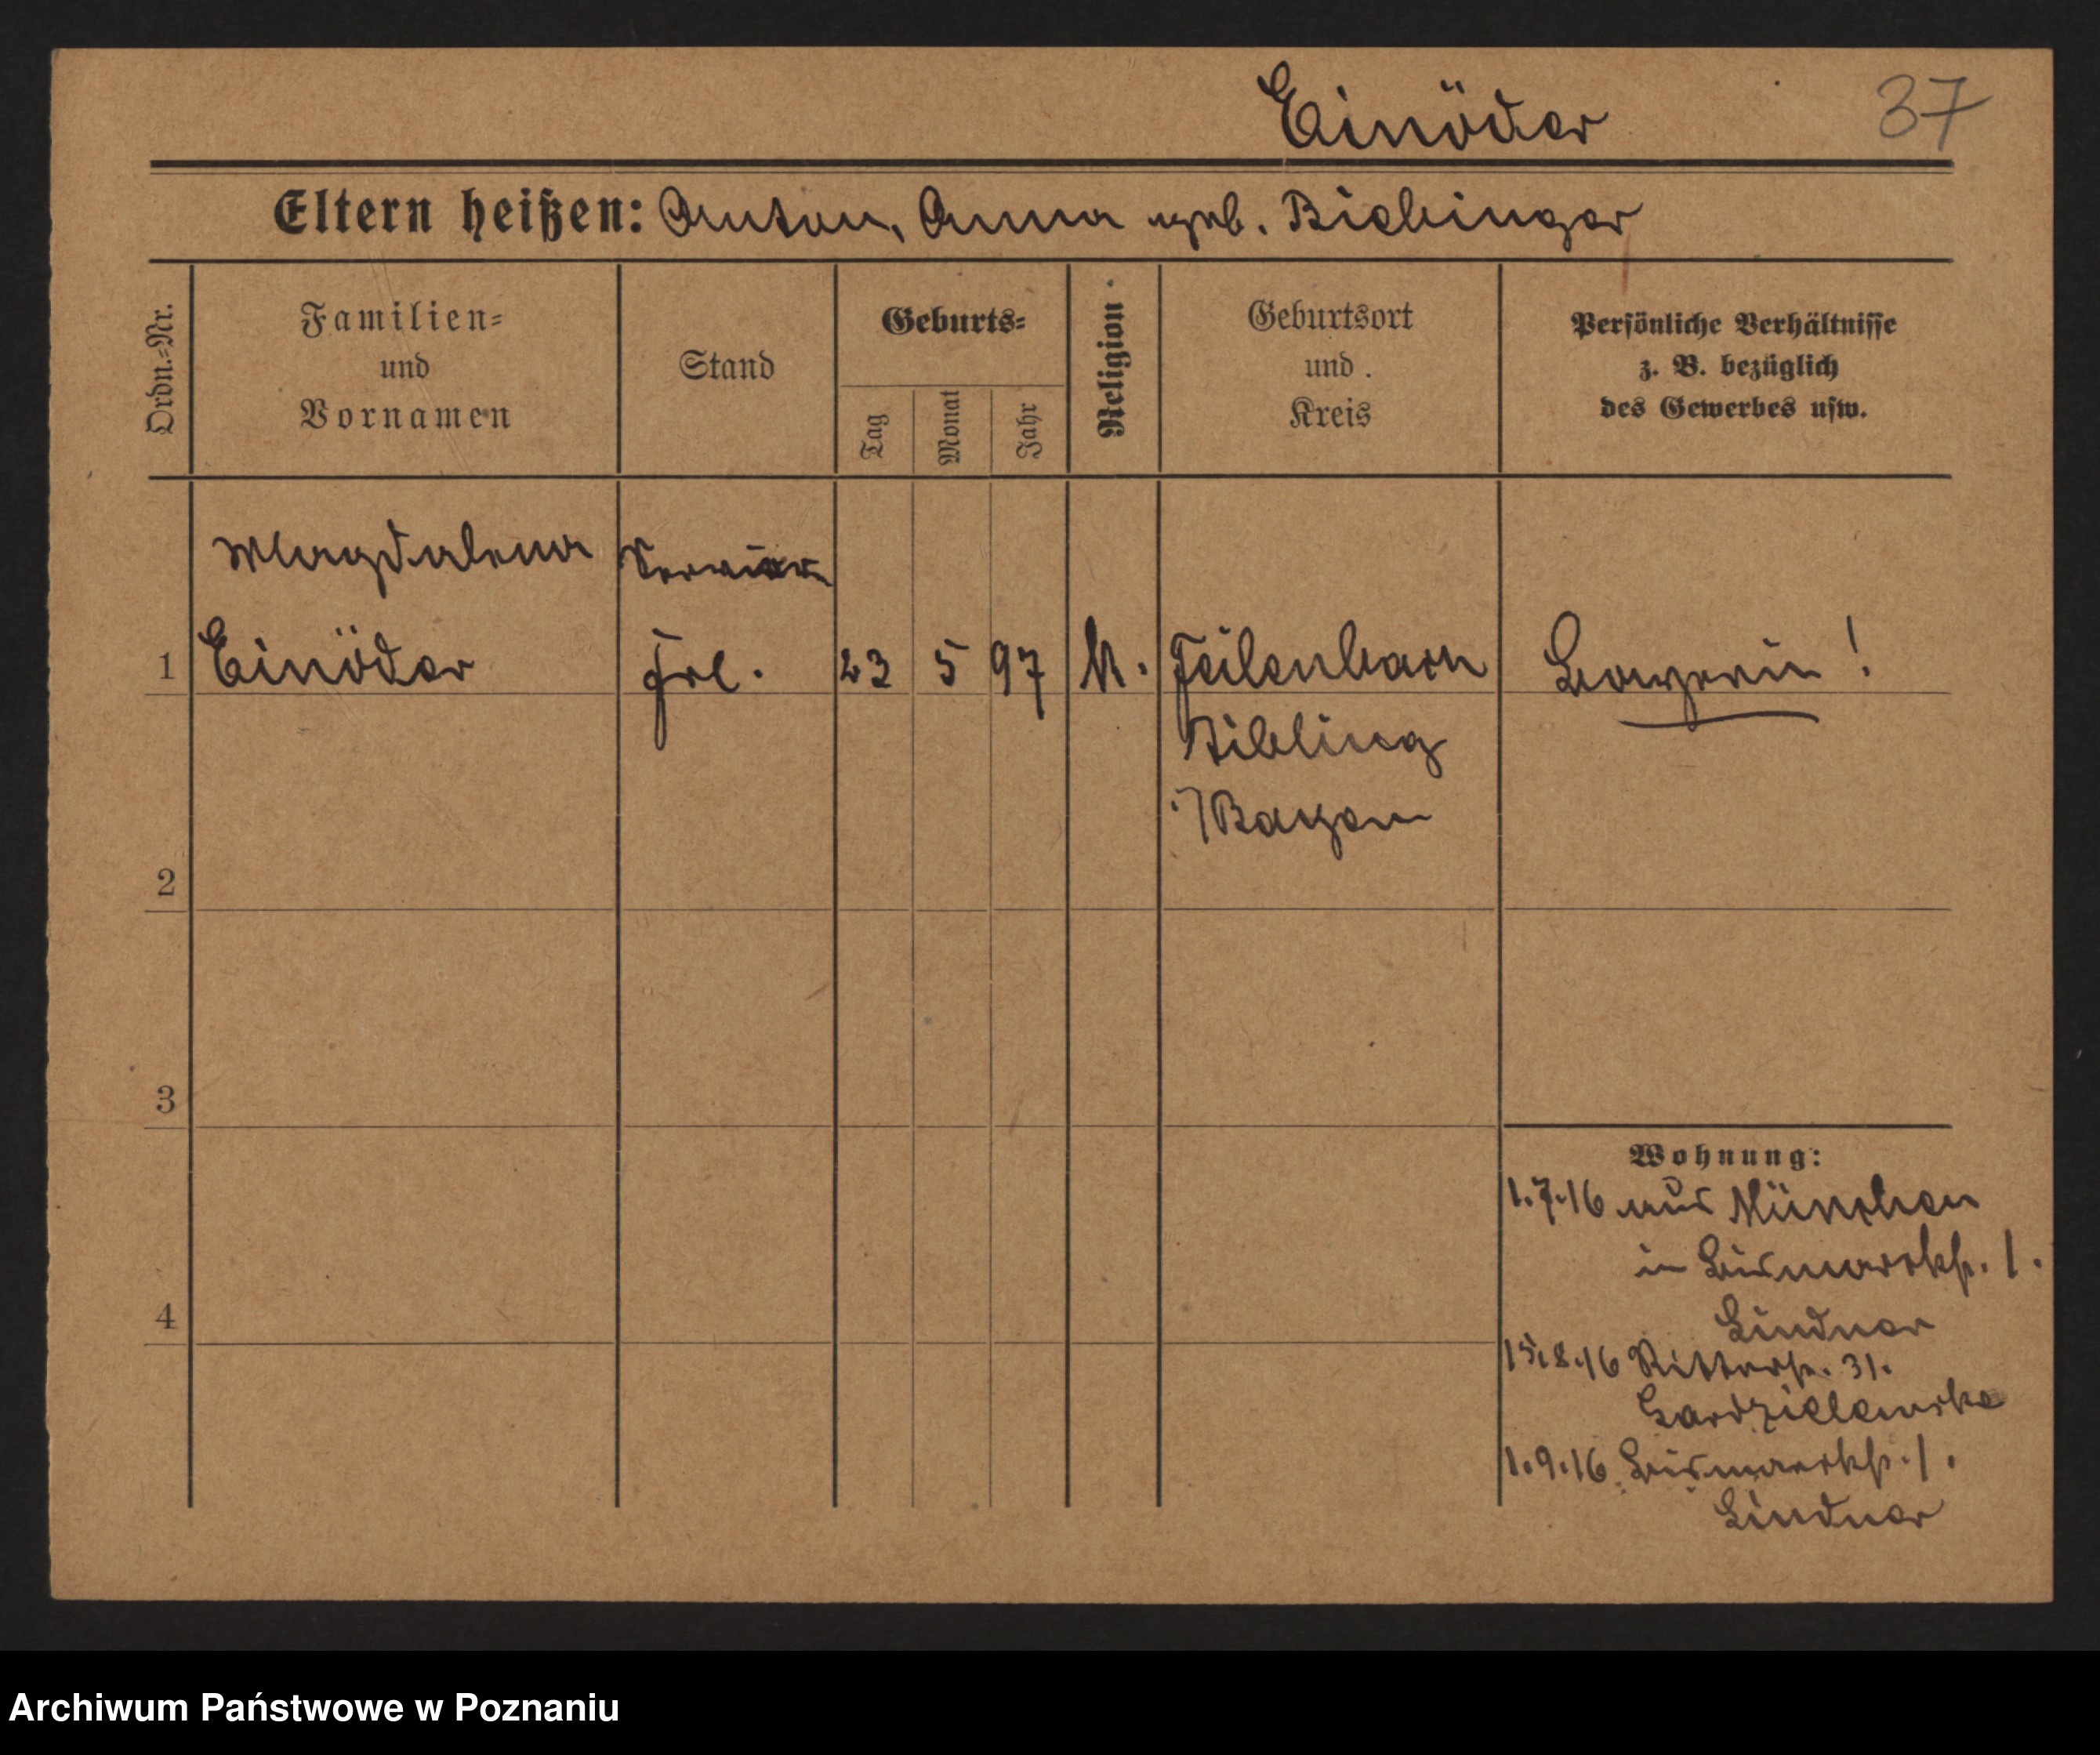 Einöder 37
Eltern heißen: Anton, Anna geb. Bichinger
Ordn.=Nr.
Familien=
und
Vornamen
Stand
Geburts=
Tag
Monat
Jahr
Religion
Geburtsort
und
Kreis
Persönliche Verhältnisse
z. B. bezüglich
des Gewerbes usw.
Magdalena
1 Einöder Frl. 23 5 97 K. Feilenbach Bayerin!
Aibling
i/Bayern
2
3
4
Wohnung:
1.7.16 aus München
in Bismarckstr. 1.
Lindner
15.8.16 Ritterstr. 31.
1.9.16 Bismarckstr. 1.
Lindner
Archiwum Państwowe w Poznaniu